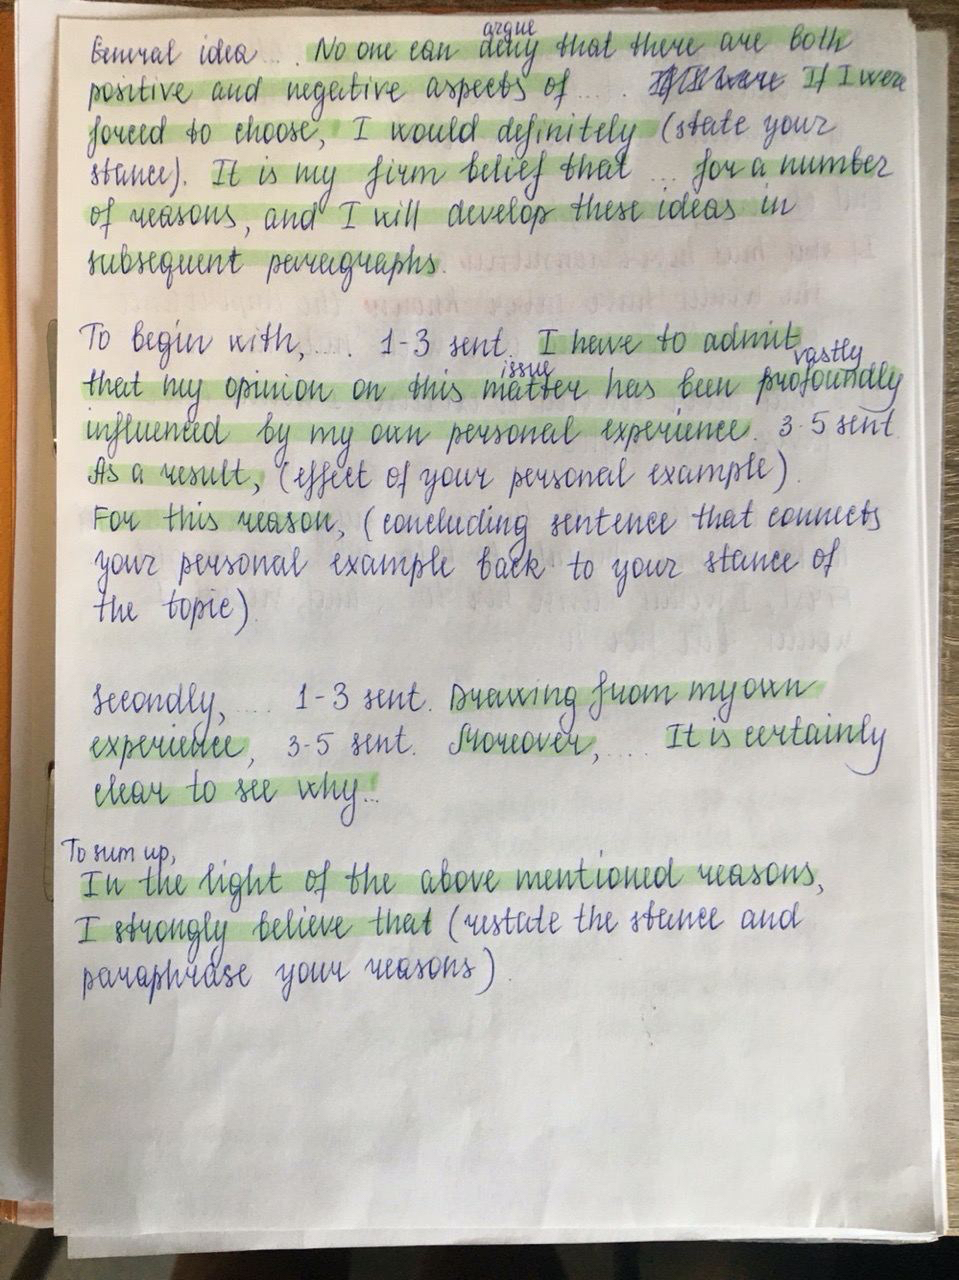 General idea ... . No one can deny that there are both
argue
positive and negative aspects of ..... . If I were If I were
forced to choose, I would definitely (state your
stance). It is my firm belief that ... for a number
of reasons, and I will develop these ideas in
subsequent paragraphs.
To begin with, .... . 1-3 sent. I have to admit
that my opinion on this matter has been profoundly
issue
vastly
influenced by my own personal experience. 3-5 sent.
As a result, (effect of your personal example).
For this reason, (concluding sentence that connects
your personal example back to your stance of
the topic).
Secondly, .... 1-3 sent. Drawing from my own
experience, 3-5 sent. Moreover, .... It is certainly
clear to see why...
To sum up,
In the light of the above mentioned reasons,
I strongly believe that (restate the stance and
paraphrase your reasons).